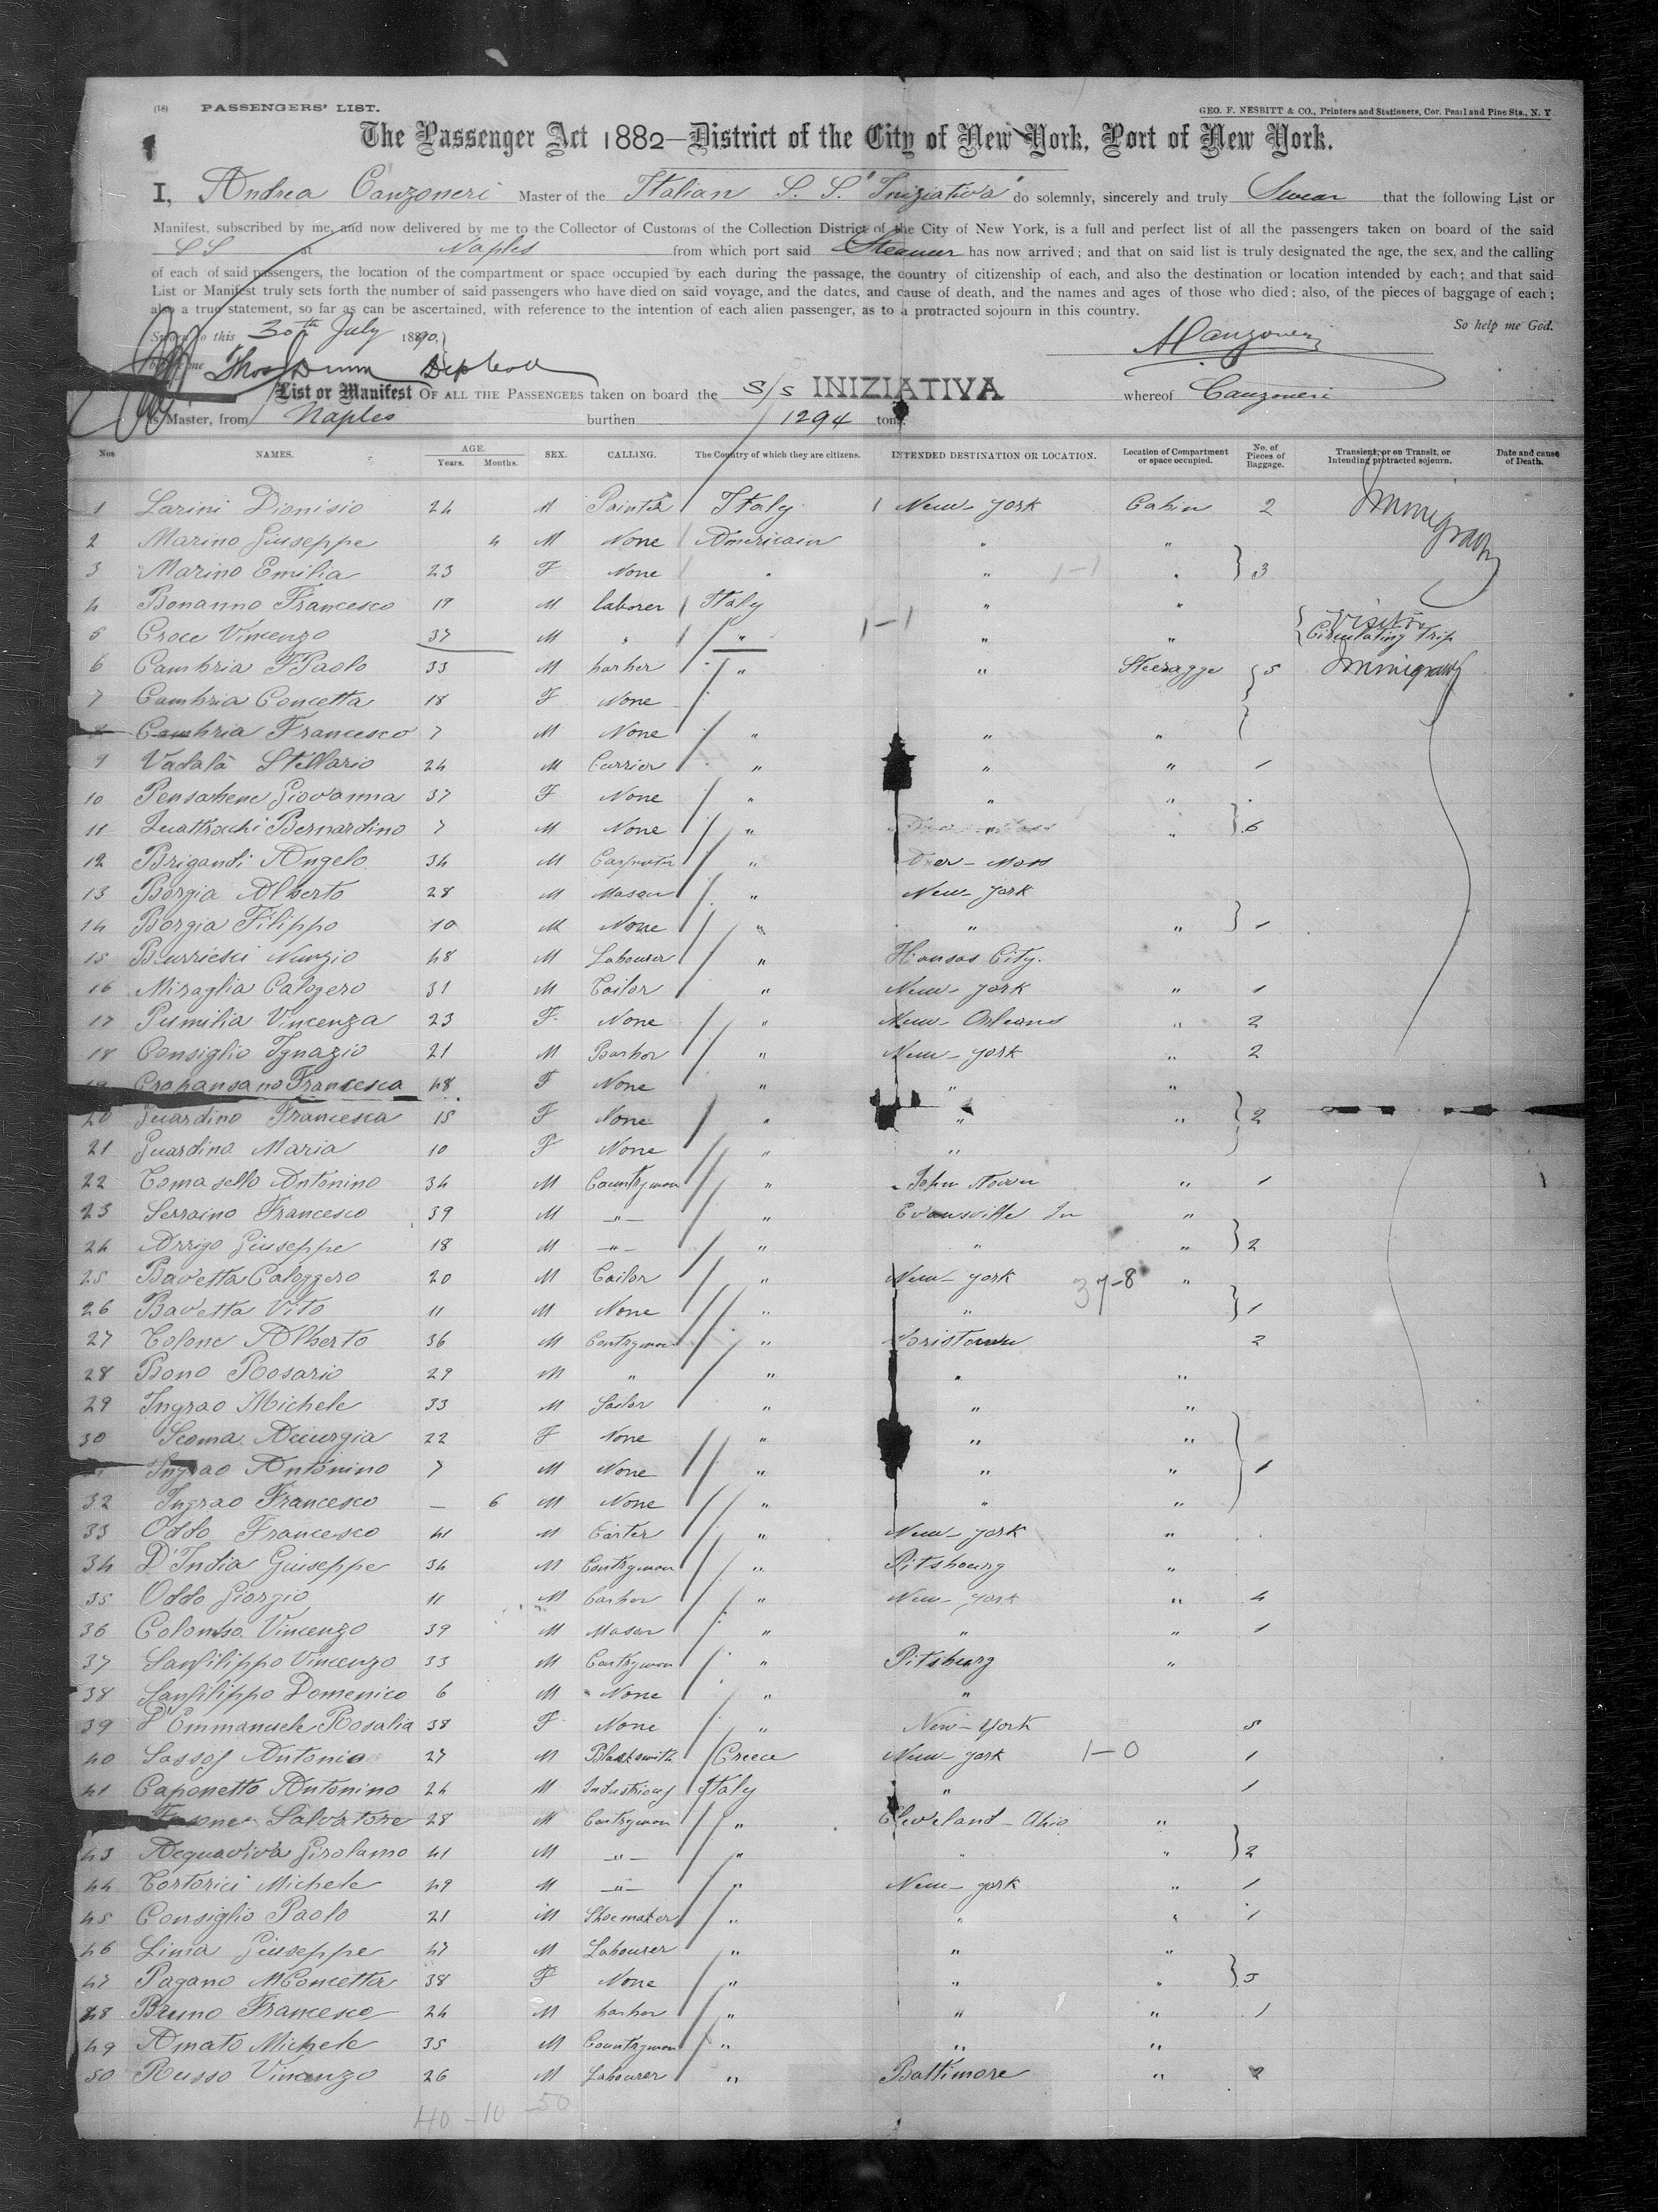 (18) PASSENGERS' LIST. GEO. F. NESBITT & CO., Printers and Stationers, Cor. Pearl and Pine Sts., N. Y.
The Passenger Act 1882—District of the City of New York, Port of New York.
I, Andrea Canzoneri Master of the Italian S. S. "Iniziativa" do solemnly, sincerely and truly Swear that the following List or
Manifest, subscribed by me, and now delivered by me to the Collector of Customs of the Collection District of the City of New York, is a full and perfect list of all the passengers taken on board of the said
SS at Naples from which port said Steamer has now arrived; and that on said list is truly designated the age, the sex, and the calling
of each of said passengers, the location of the compartment or space occupied by each during the passage, the country of citizenship of each, and also the destination or location intended by each; and that said
List or Manifest truly sets forth the number of said passengers who have died on said voyage, and the dates, and cause of death, and the names and ages of those who died; also, of the pieces of baggage of each;
also a true statement, so far as can be ascertained, with reference to the intention of each alien passenger, as to a protracted sojourn in this country.
So help me God.
Sworn to this 30th July 1890, ACanzoneri
before me Thos Dunn Dep Coll
List or Manifest OF ALL THE PASSENGERS taken on board the S/S INIZIATIVA whereof Canzoneri
is Master, from Naples burthen 1294 tons.
Nos NAMES. AGE. Years. Months. SEX. CALLING. The Country of which they are citizens. INTENDED DESTINATION OR LOCATION. Location of Compartment or space occupied. No. of Pieces of Baggage. Transient, or on Transit, or Intending protracted sojourn. Date and cause of Death.
1 Larini Dionisio 24 M Painter Italy 1 New-York Cabin 2 Immigrant
2 Marino Giuseppe 4 M None Americain " "
3 Marino Emilia 23 F None " " 1-1 " } 3
4 Bonanno Francesco 19 M laborer Italy " "
5 Croce Vincenzo 37 M " " 1-1 " " { Visitor Circulating Trip
6 Cambria FPaolo 33 M barber " " Steeragge 5 Immigrant
7 Cambria Concetta 18 F None
8 Cambria Francesco 7 M None " " "
9 Vadalà Stellario 24 M Currier " " " 1
10 Pensabene Giovanna 37 F None " " "
11 Quattrochi Bernardino 7 M None " " " } 6
12 Brigandi Angelo 34 M Carpenter " Mass
13 Borgia Alberto 28 M Mason " New-York
14 Borgia Filippo 10 M None " " " } 1
15 Burriesci Nunzio 48 M Labourer " Kansas City.
16 Miraglia Calogero 31 M Tailor " New-York " 1
17 Pumilia Vincenza 23 F. None " New-Orleans " 2
18 Consiglio Ignazio 21 M Barber " New-York " 2
19 Crapansano Francesca 48 F None " " "
20 Guardino Francesca 15 F None " " " } 2
21 Guardino Maria 10 F None " "
22 Tomasello Antonino 34 M Countryman " John " 1
23 Serraino Francesco 39 M -"- " Evansville In "
24 Arrigo Giuseppe 18 M -"- " " " } 2
25 Bavetta Caloggero 20 M Tailor " New-York 37-8 "
26 Bavetta Vito 11 M None " " } 1
27 Colone Alberto 36 M Contryman " 2
28 Bono Rosario 29 M " " " "
29 Ingrao Michele 33 M Sailor " " "
30 Scoma Accurgia 22 F None " " "
Ingrao Antonino 7 M None " " " 1
32 Ingrao Francesco — 6 M None " " "
33 Oddo Francesco 41 M Carter " New-York "
34 D'India Giuseppe 34 M Contryman " Pitsbourg "
35 Oddo Giorgio 11 M Barber " New-York " 4
36 Colombo Vincenzo 39 M Mason " " " 1
37 Sanfilippo Vincenzo 33 M Contryman " Pitsburg "
38 Sanfilippo Domenico 6 M None " "
39 D'Emmanuele Rosalia 38 F None " New-York 5
40 Sassos Antonio 27 M Blacksmith Greece New-York 1-0 1
41 Caponetto Antonino 24 M Industrious Italy " 1
Salvatore 28 M Contryman " Cleveland-Ohio "
43 Acquaviva Girolamo 41 M -"- " " " } 2
44 Tortorici Michele 49 M -"- " New-York " 1
45 Consiglio Paolo 21 M Shoemaker " " " 1
46 Lima Giuseppe 47 M Labourer " " "
47 Pagano MConcetta 38 F None " " " } 5
48 Bruno Francesco 24 M barber " " " 1
49 Amato Michele 35 M Countryman " " "
50 Russo Vincenzo 26 M Labourer " Baltimore " 2
40-10-50